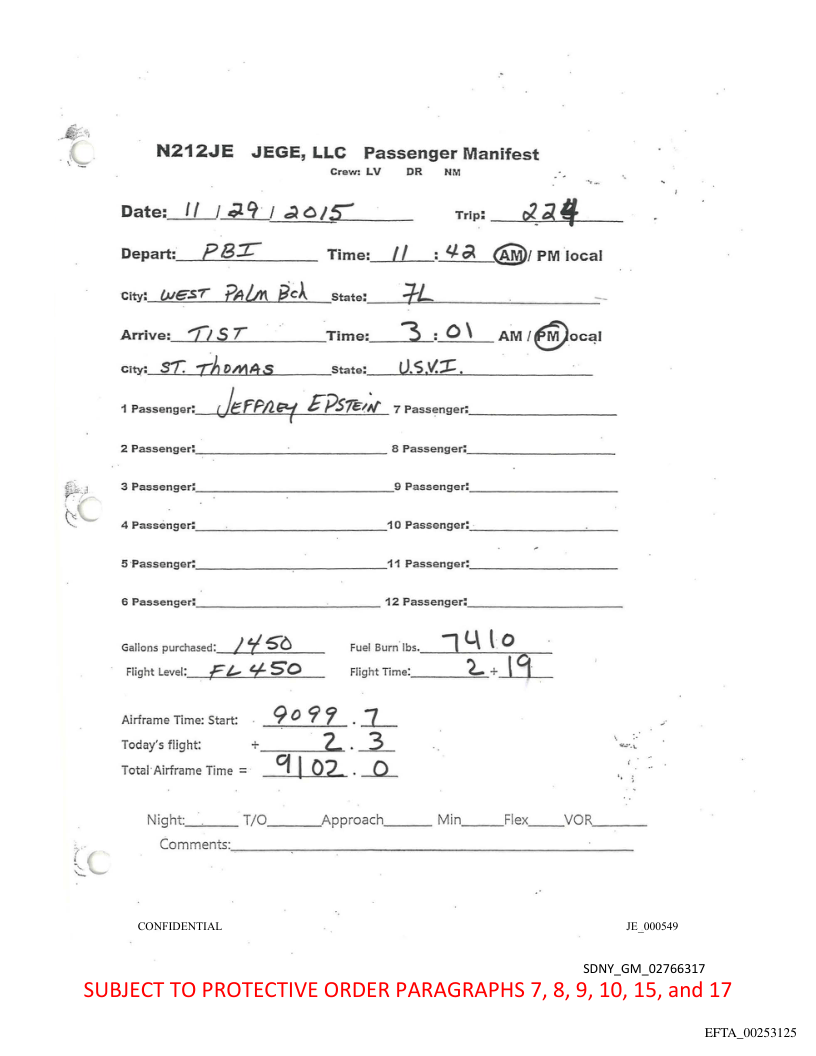 N212JE JEGE, LLC Passenger Manifest
Crew: LV DR NM
Date: 11 / 29 / 2015 Trip: 224
Depart: PBI Time: 11 : 42 AM / PM local
City: WEST PALM Bch State: FL
Arrive: TIST Time: 3 : 01 AM / PM local
City: ST. THOMAS State: U.S.V.I.
1 Passenger: JEFFREY EPSTEIN 7 Passenger:
2 Passenger: 8 Passenger:
3 Passenger: 9 Passenger:
4 Passenger: 10 Passenger:
5 Passenger: 11 Passenger:
6 Passenger: 12 Passenger:
Gallons purchased: 1450 Fuel Burn lbs. 7410
Flight Level: FL 450 Flight Time: 2 + 19
Airframe Time: Start: 9099 . 7
Today's flight: + 2 . 3
Total Airframe Time = 9102 . 0
Night: T/O Approach Min Flex VOR
Comments:
CONFIDENTIAL JE_000549
SDNY_GM_02766317
SUBJECT TO PROTECTIVE ORDER PARAGRAPHS 7, 8, 9, 10, 15, and 17
EFTA_00253125